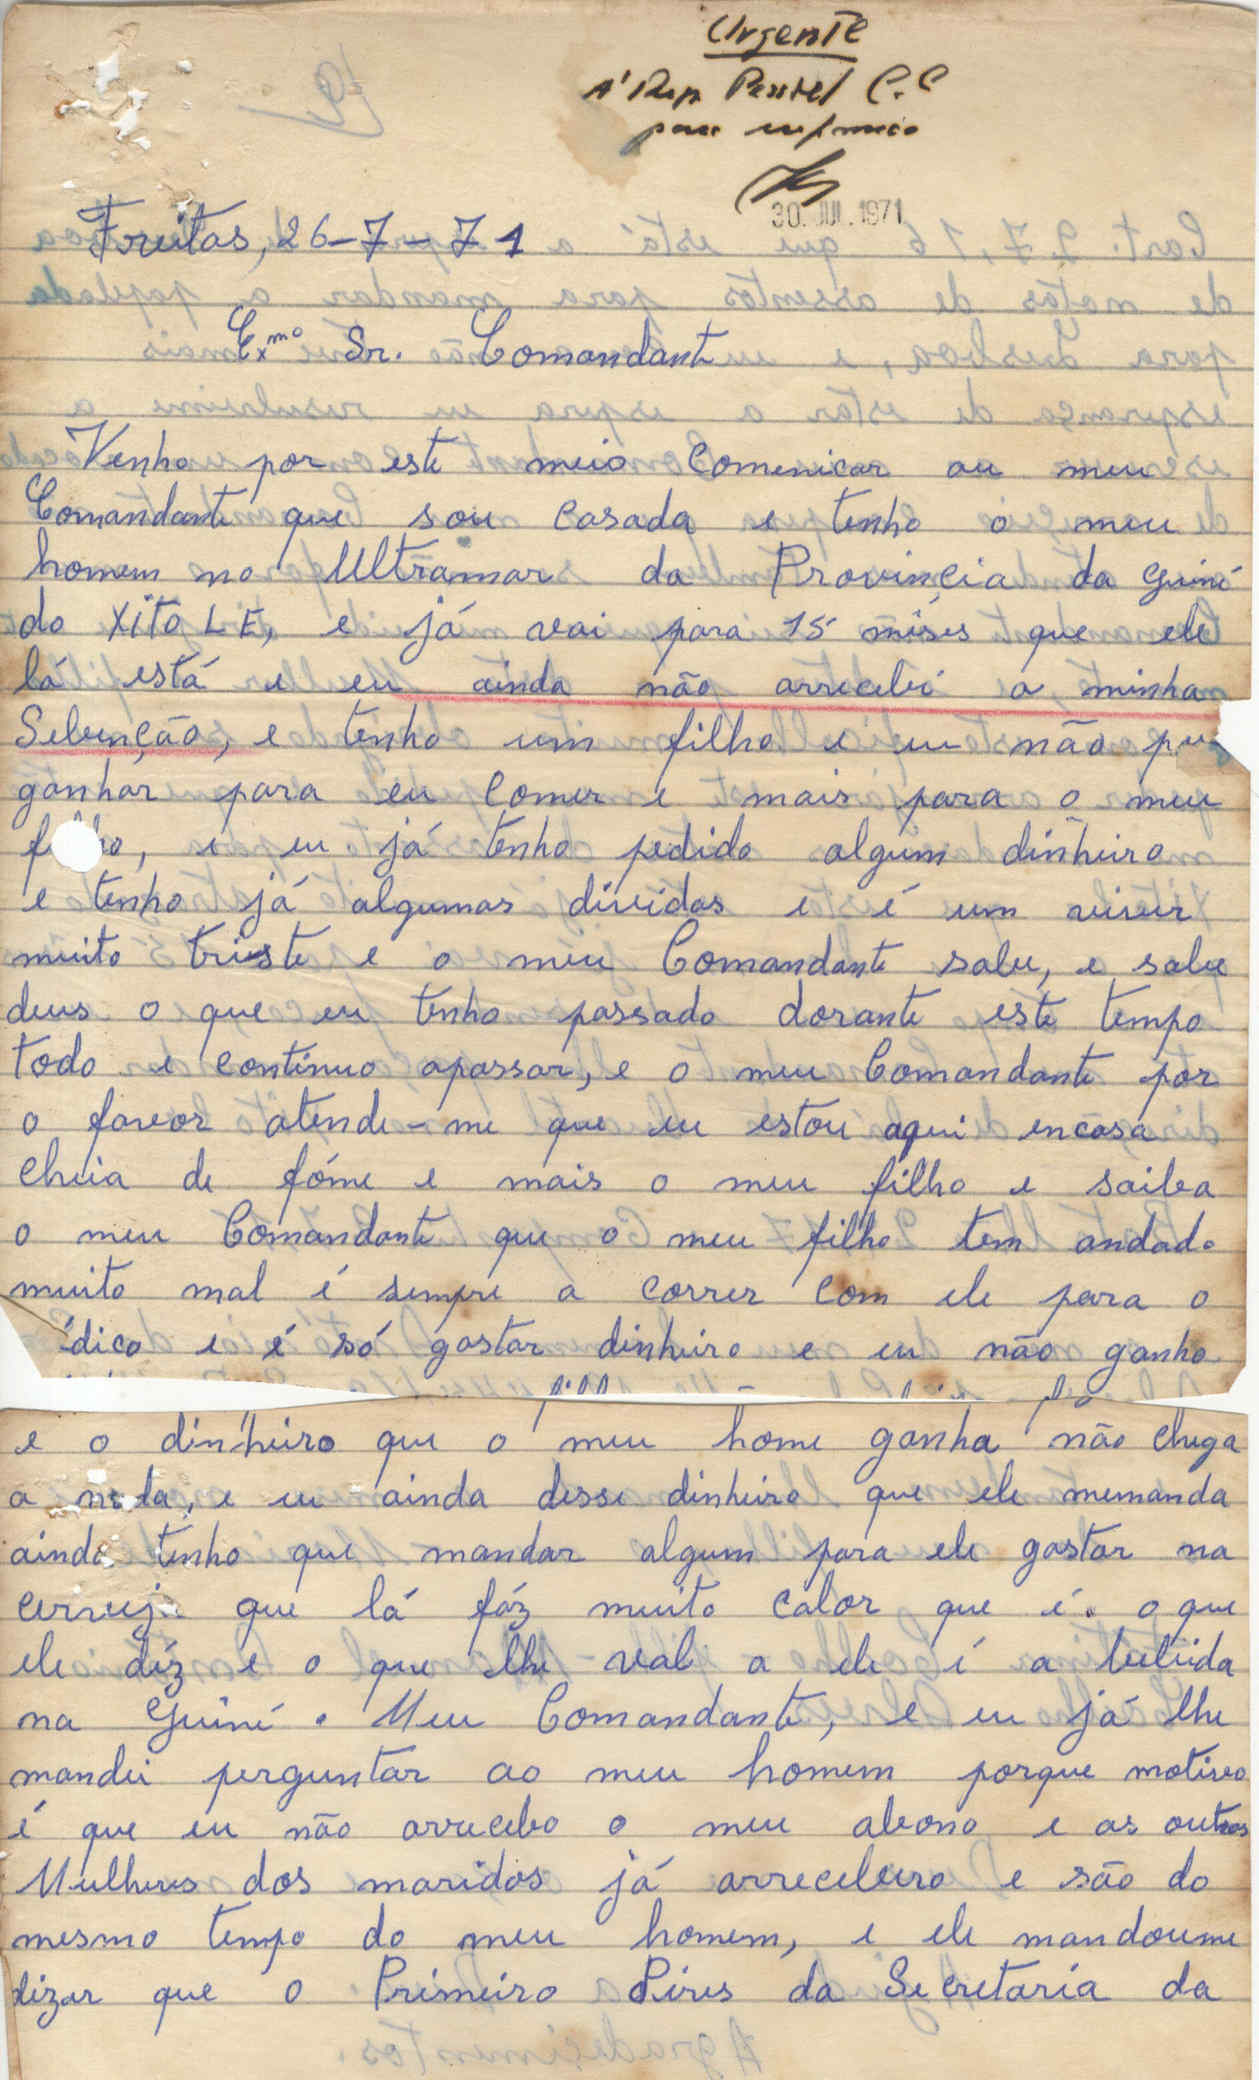 Urgente
C.C
para
30. JUL. 1971
Freitas, 26-7-71
Exmo Sr. Comandante
Venho por este meio Comenicar au meu
Comandante que sou casada e tenho o meu
homem no Ultramar da Provinçia da Guiné
do XitoLE, e já vai para 15 mêses que ele
lá está e eu ainda não arrecebi a minha
Sebenção, e tenho um filho e eu não
ganhar para eu comer e mais para o meu
e eu já tenho pedido algum dinheiro
e tenho já algumas dividas e é um viver
muito triste e o meu Comandante sabe, e sabe
deus o que eu tenho passado dorante este tempo
todo e continuo apassar, e o meu Comandante por
o favor atende-me que eu estou aqui encasa
cheia de fóme e mais o meu filho e saiba
o meu Comandante que o meu filho tem andado
muito mal é sempre a correr com ele para o
édico e é só gastar dinheiro e eu não ganho
e o dinheiro que o meu home ganha não chega
a nada, e eu ainda desse dinheiro que ele memanda
ainda tenho que mandar algum para ele gastar na
cerveja que lá fáz muito calor que é. o que
ele díz e o que lhe val a ele é a bebida
na Guiné. Meu Comandante, e eu já lhe
mandei perguntar ao meu homem porque motivo
é que eu não arrecebo o meu abono e as outras
Mulheres dos maridos já arrecebero e são do
mesmo tempo do meu homem, e ele mandoume
dizar que o Primeiro Pires da Secretaria da